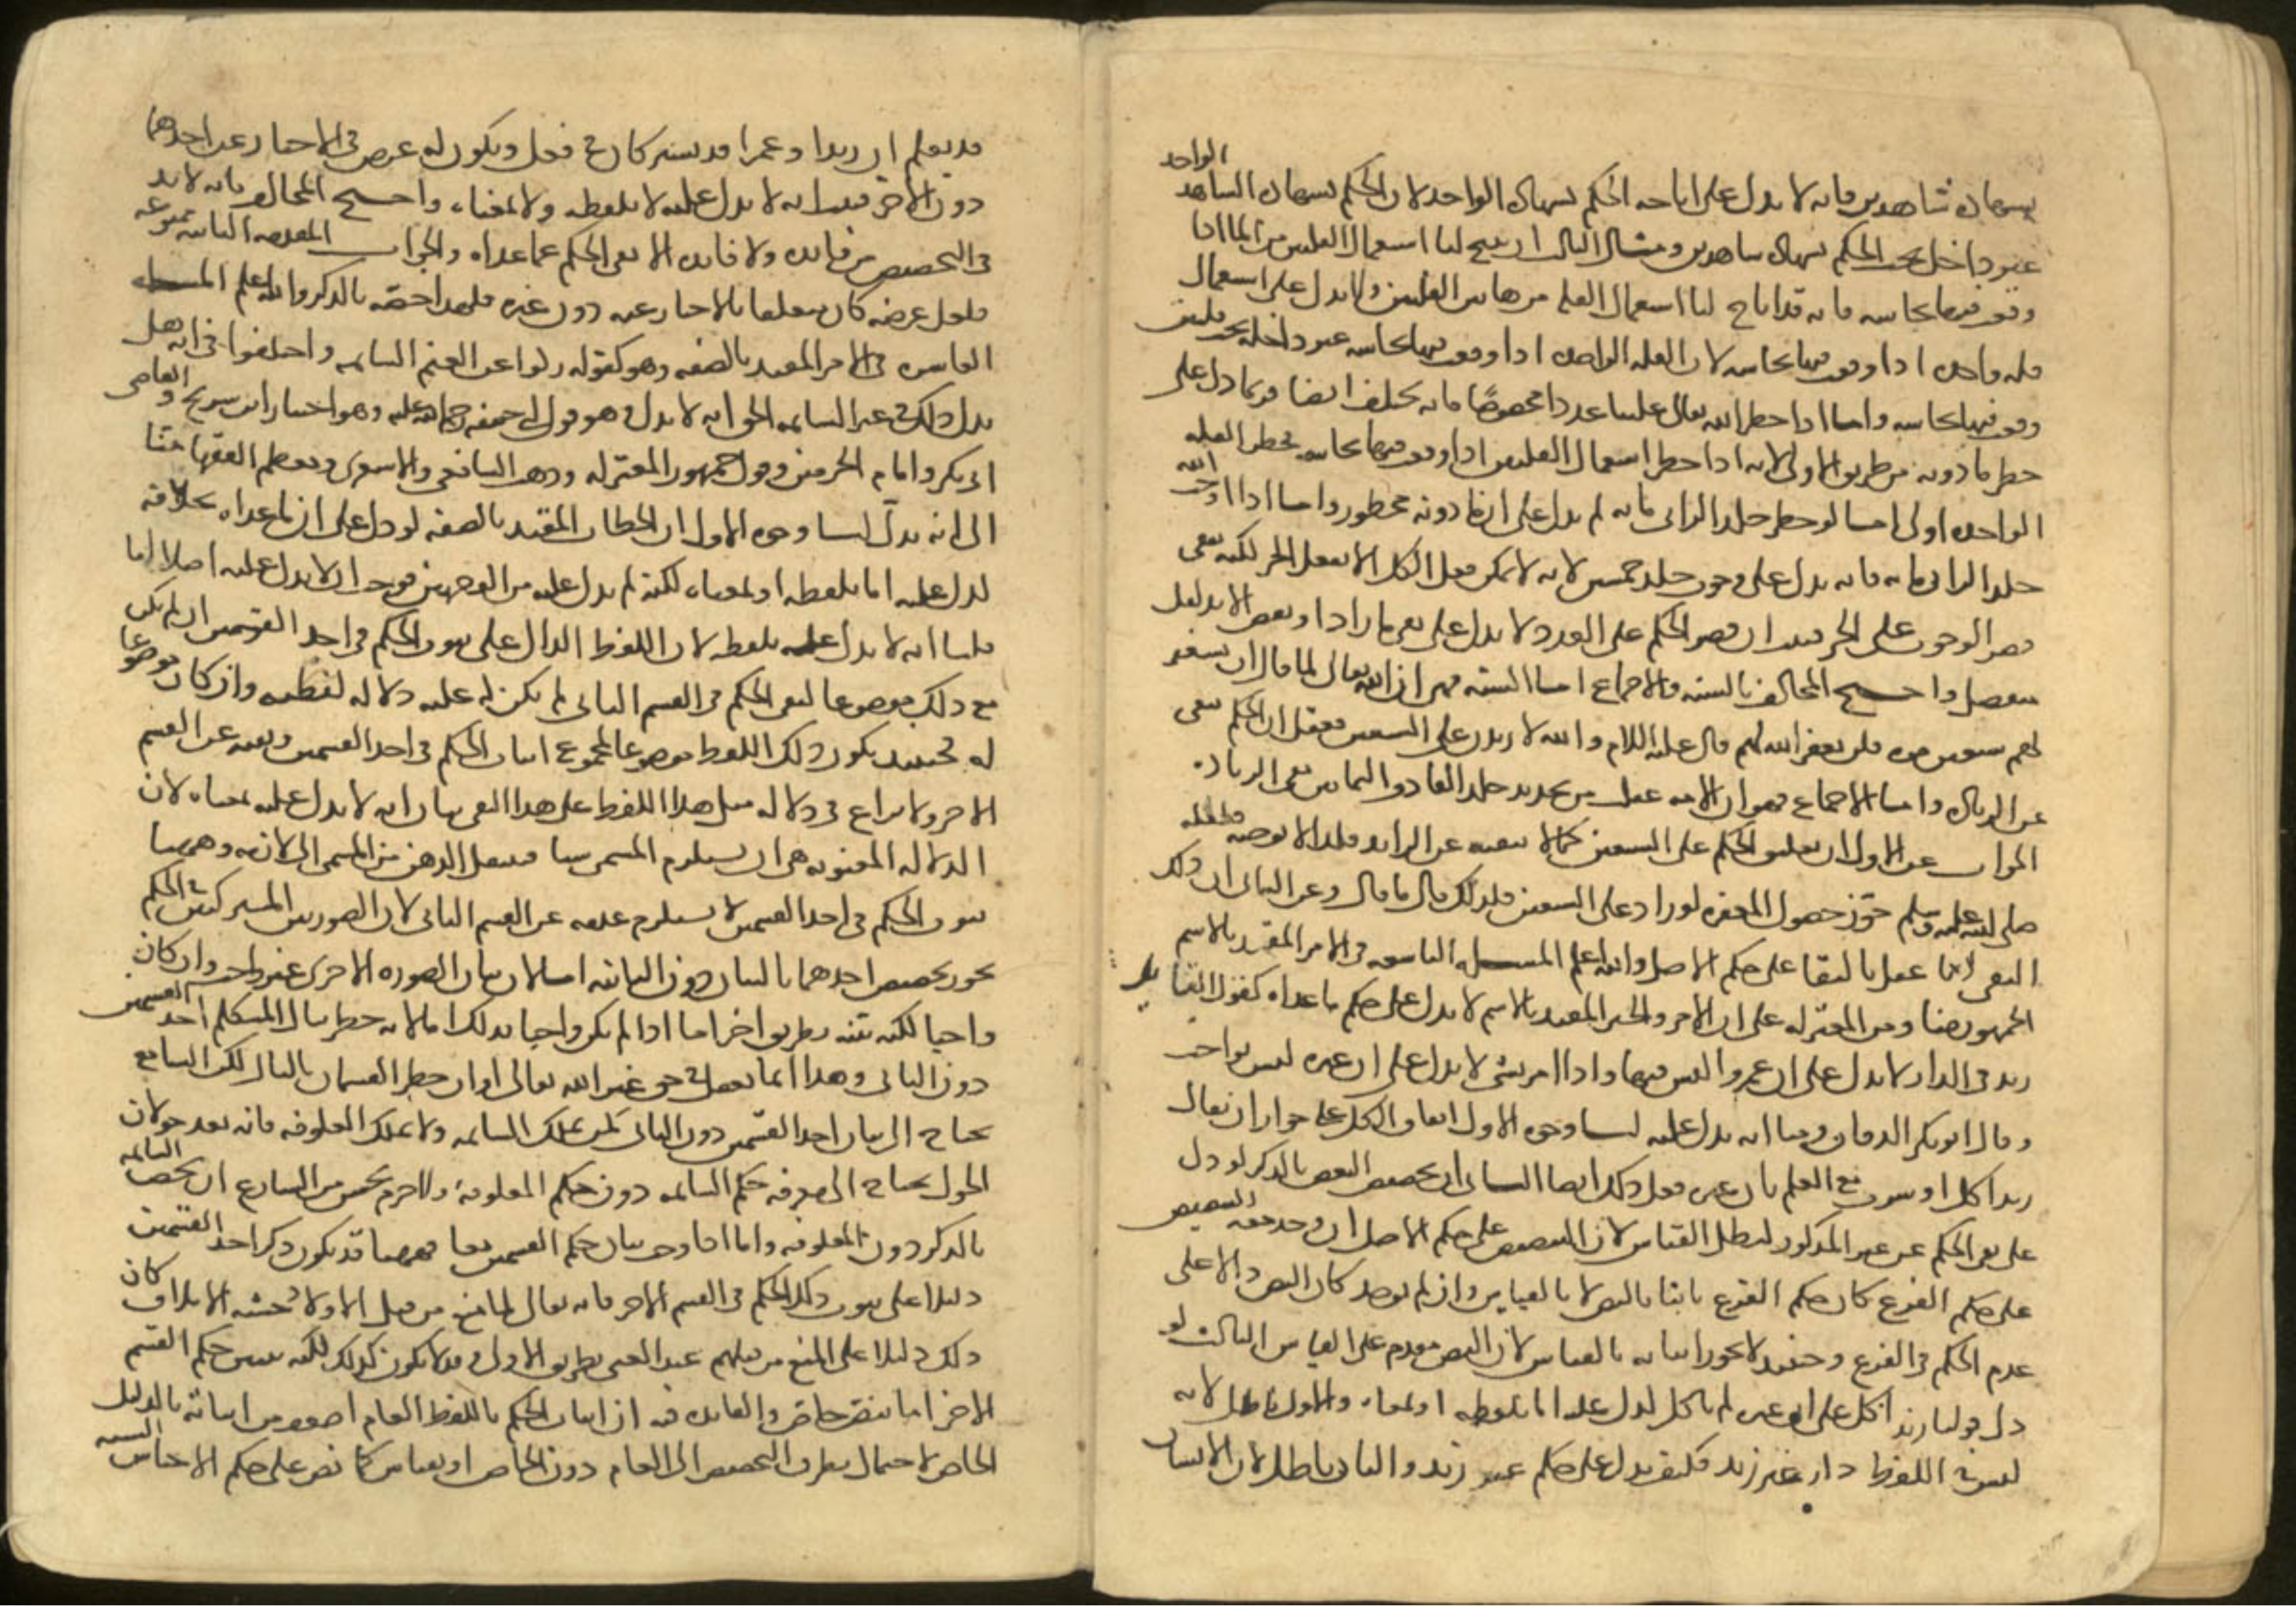 بشهادة شاهدين فانه لا يدل على اباحه الحكم بشهادة الواحد لان الحكم بشهادة الشاهد الواحد
غير داخل تحت الحكم بشهادة شاهدين ومثال الثالث ان يبيح لنا استعمال القلتين من الما اذا
وقعت فيهما نجاسه فانه قد اباح لنا استعمال القله من هاتين القلتين ولا يدل على استعمال
قله واحده اذا وقعت فيها نجاسه لان القله الواحده اذا وقعت فيها نجاسه غير داخله تحت قلتين
وقعت فيها نجاسه واما اذا حظر الله تعالى علينا عددا مخصوصًا فانه يختلف ايضا فربما دل على
حظر ما دونه من طريق الاولى لانه اذا حظر استعمال القلتين اذا وقعت فيهما نجاسه فحظر القله
الواحده اولى اما لو حظر جلد الزانى مايه لم يدل على ان ما دونه محظور واما اذا اوجب الله
جلد الزانى مايه فانه يدل على وجوب جلد خمسين لانه لا يمكن فعل الكل الا بفعل الجز لكنه ينفى
قصر الوجوب على الجز فثبت ان قصر الحكم على العدد لا يدل على نفى ما زاد او نقص الا بدليل
منفصل واحتج المخالف بالسنه والاجماع اما السنه فهى ان الله تعالى لما قال ان تستغفر
لهم سبعين مره فلن يغفر الله لهم قال عليه السلام والله لا زيدن على السبعين فعقل ان الحكم ينفى
عن الزياده واما الاجماع فهو ان الامه عقلت من تحديد حد القاذف والثمانين نفى الزياده
الجواب عن الاول ان تعليق الحكم على السبعين كما لا ينفيه عن الزايد فلذا لا يوجبه فلعله
صلى الله عليه وسلم جوّز حصول المغفره لو زاد على السبعين فلذلك قال ما قال وعن الثانى ان ذلك
النفى انما عقل بالبقا على حكم الاصل والله اعلم المسله التاسعه فى الامر المقيد بالاسم
الجمهور منا ومن المعتزله على ان الامر والخبر المقيد بالاسم لا يدل على حكم ما عداه كقول القايل
زيد فى الدار لا يدل على ان عمروا ليس فيها واذا امر بشى لا يدل على ان غيره ليس بواجب
وقال ابو بكر الدقاق منا انه يدل عليه لنا وجوه الاول اتفاق الكل على جواز ان يقال
زيد اكل او شرب مع العلم بان غيره فعل ذلك ايضا الثانى ان تخصيص البعض بالذكر لو دل
على نفى الحكم عن غير المذكور لبطل القياس لان التنصيص على حكم الاصل ان وجد معه التنصيص
على حكم الفرع كان حكم الفرع ثابتا بالنص لا بالقياس وان لم يوجد كان النص دالا على
عدم الحكم فى الفرع وحينئذ لا يجوز اثباته بالقياس لان النص مقدم على القياس الثالث لو
دل قولنا زيد اكل على ان غيره لم ياكل لدل عليه اما بلفظه او بمعناه والاول باطل لانه
ليس فى اللفظ ذكر غير زيد فكيف يدل على حكم غير زيد والثانى باطل لان الانسان
قد يعلم ان زيدا وعمرا قد يشتركان فى فعل ويكون له غرض فى الاخبار عن احدهما
دون الاخر فثبت انه لا يدل عليه لا بلفظه ولا بمعناه واحتج المخالف بانه لا بد
فى التخصيص من فايده ولا فايده الا نفى الحكم عما عداه والجواب المقدمه الثانيه ممنوعه
فلعل غرضه كان متعلقا بالاخبار عنه دون غيره فلهذا خصّه بالذكر والله اعلم المسله
العاشره فى الامر المقيد بالصفه وهو كقوله زكوا عن الغنم السايمه واختلفوا فى انه هل
يدل ذلك فى غير السايمه الحق انه لا يدل وهو قول ابى حنيفه رحمة الله عليه وهو اختيار ابن سريج والقاضى
ابى بكر وامام الحرمين وقول جمهور المعتزله وذهب الشافعى والاشعرى ومعظم الفقها منّا
الى انه يدلّ لنا وجوه الاول ان الخطاب المقيد بالصفه لو دل على ان ما عداه بخلافه
لدل عليه اما بلفظه او بمعناه لكنه لم يدل عليه من الوجهين فوجب ان لا يدل عليه اصلا انما
قلنا انه لا يدل عليه بلفظه لان اللفظ الدال على ثبوت الحكم فى احد القسمين ان لم يكن
مع ذلك موضوعا لنفى الحكم فى القسم الثانى لم يكن له عليه دلاله لفظيه وان كان موضوعا
له فحينئذ يكون ذلك اللفظ موضوعا لمجموع اثبات الحكم فى احد القسمين ونفيه عن القسم
الاخر ولا نزاع فى دلاله مثل هذا اللفظ على هذا النفى بيان انه لا يدل عليه بمعناه لان
الدلاله المعنويه هى ان يستلزم المسمى شيا فينتقل الذهن من المسمى الى لازمه وههنا
ثبوت الحكم فى احد القسمين لا يستلزم عدمه عن القسم الثانى لان الصورتين المشتركتين فى الحكم
يجوز تخصيص احدهما بالبيان دون الثانيه اما لان بيان الصوره الاخرى غير واجب وان كان
واجبا لكنه تبينه بطريق اخر اما اذا لم يكن واجبا بذلك اما لانه خطر ببال المتكلم احد القسمين
دون الثانى وهذا انما يعقل فى حق غير الله تعالى او ان خطر القسمان بالبال لكن السامع
يحتاج الى بيان احد القسمين دون الثانى كمن يملك السايمه ولا يملك المعلوفه فانه بعد حولان
الحول يحتاج الى معرفه حكم السايمه دون حكم المعلوفه ولا جرم يحسن من الشارع ان يخص السايمه
بالذكر دون المعلوفه واما اذا وجب بيان حكم القسمين معا فههنا قد يكون ذكر احد القسمين
دليلا على ثبوت ذلك الحكم فى القسم الاخر فانه تعالى لما منع من قتل الاولاد خشيه الاملاق كان
ذلك دليلا على المنع من قتلهم عند الغنى بطريق الاولى وقد لا يكون كذلك لكنه يبين حكم القسم
الاخر اما بنص خاص والفايده فيه ان اثبات الحكم باللفظ العام اضعف من اثباته بالدليل
الخاص لاحتمال تطرق التخصيص الى العام دون الخاص او بقياس كما نص على حكم الاجناس الستة